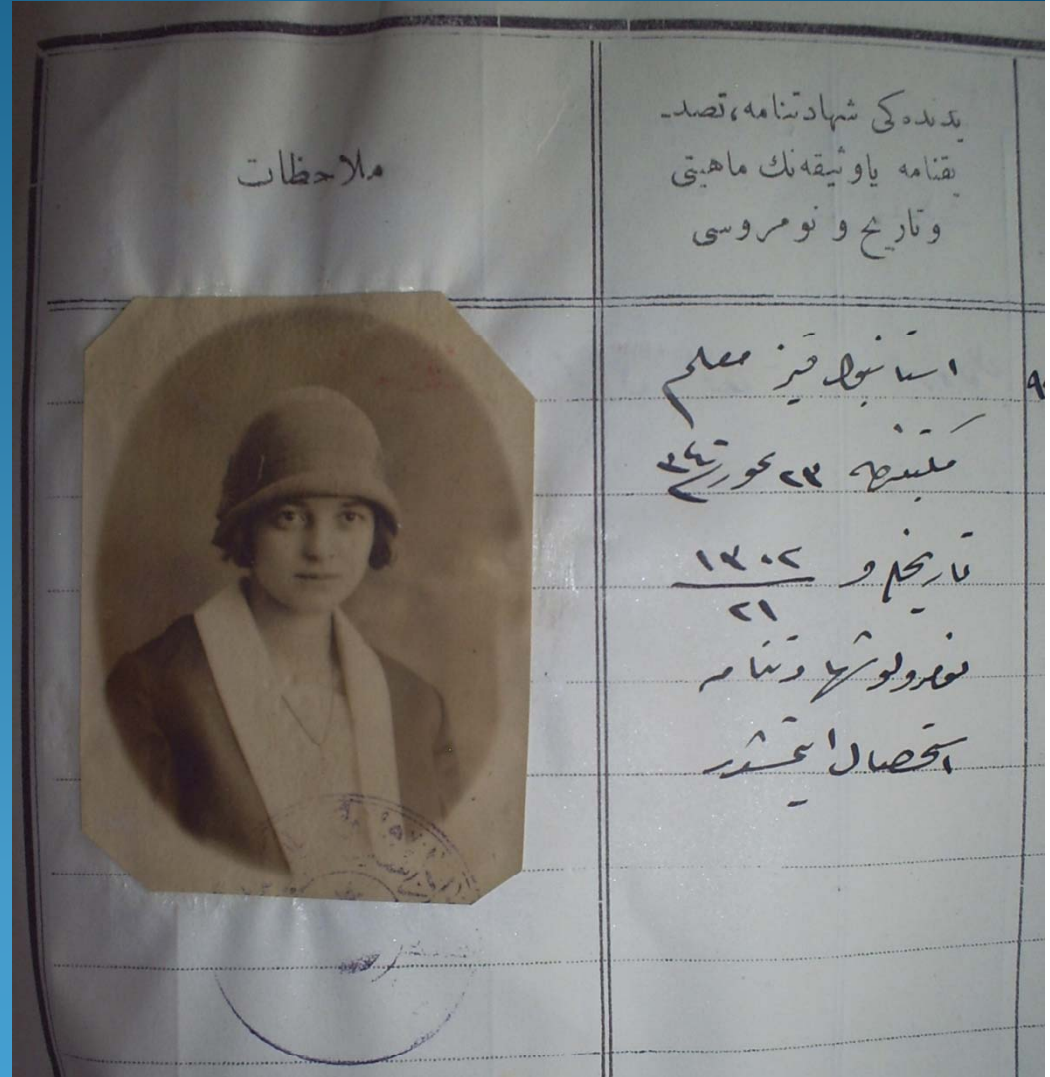 یدنده‌کی شهادتنامه، تصد-
یقنامه یا وثیقه‌نك ماهیتی
وتاریخ و نومروسی
ملاحظات
استانبول قیز معلم
مکتبندن ٢٣ تموز ٣٤٠
تاریخلی و ١٣٠٢
٢١
نومرولو شهادتنامه
استحصال ایتمشدر